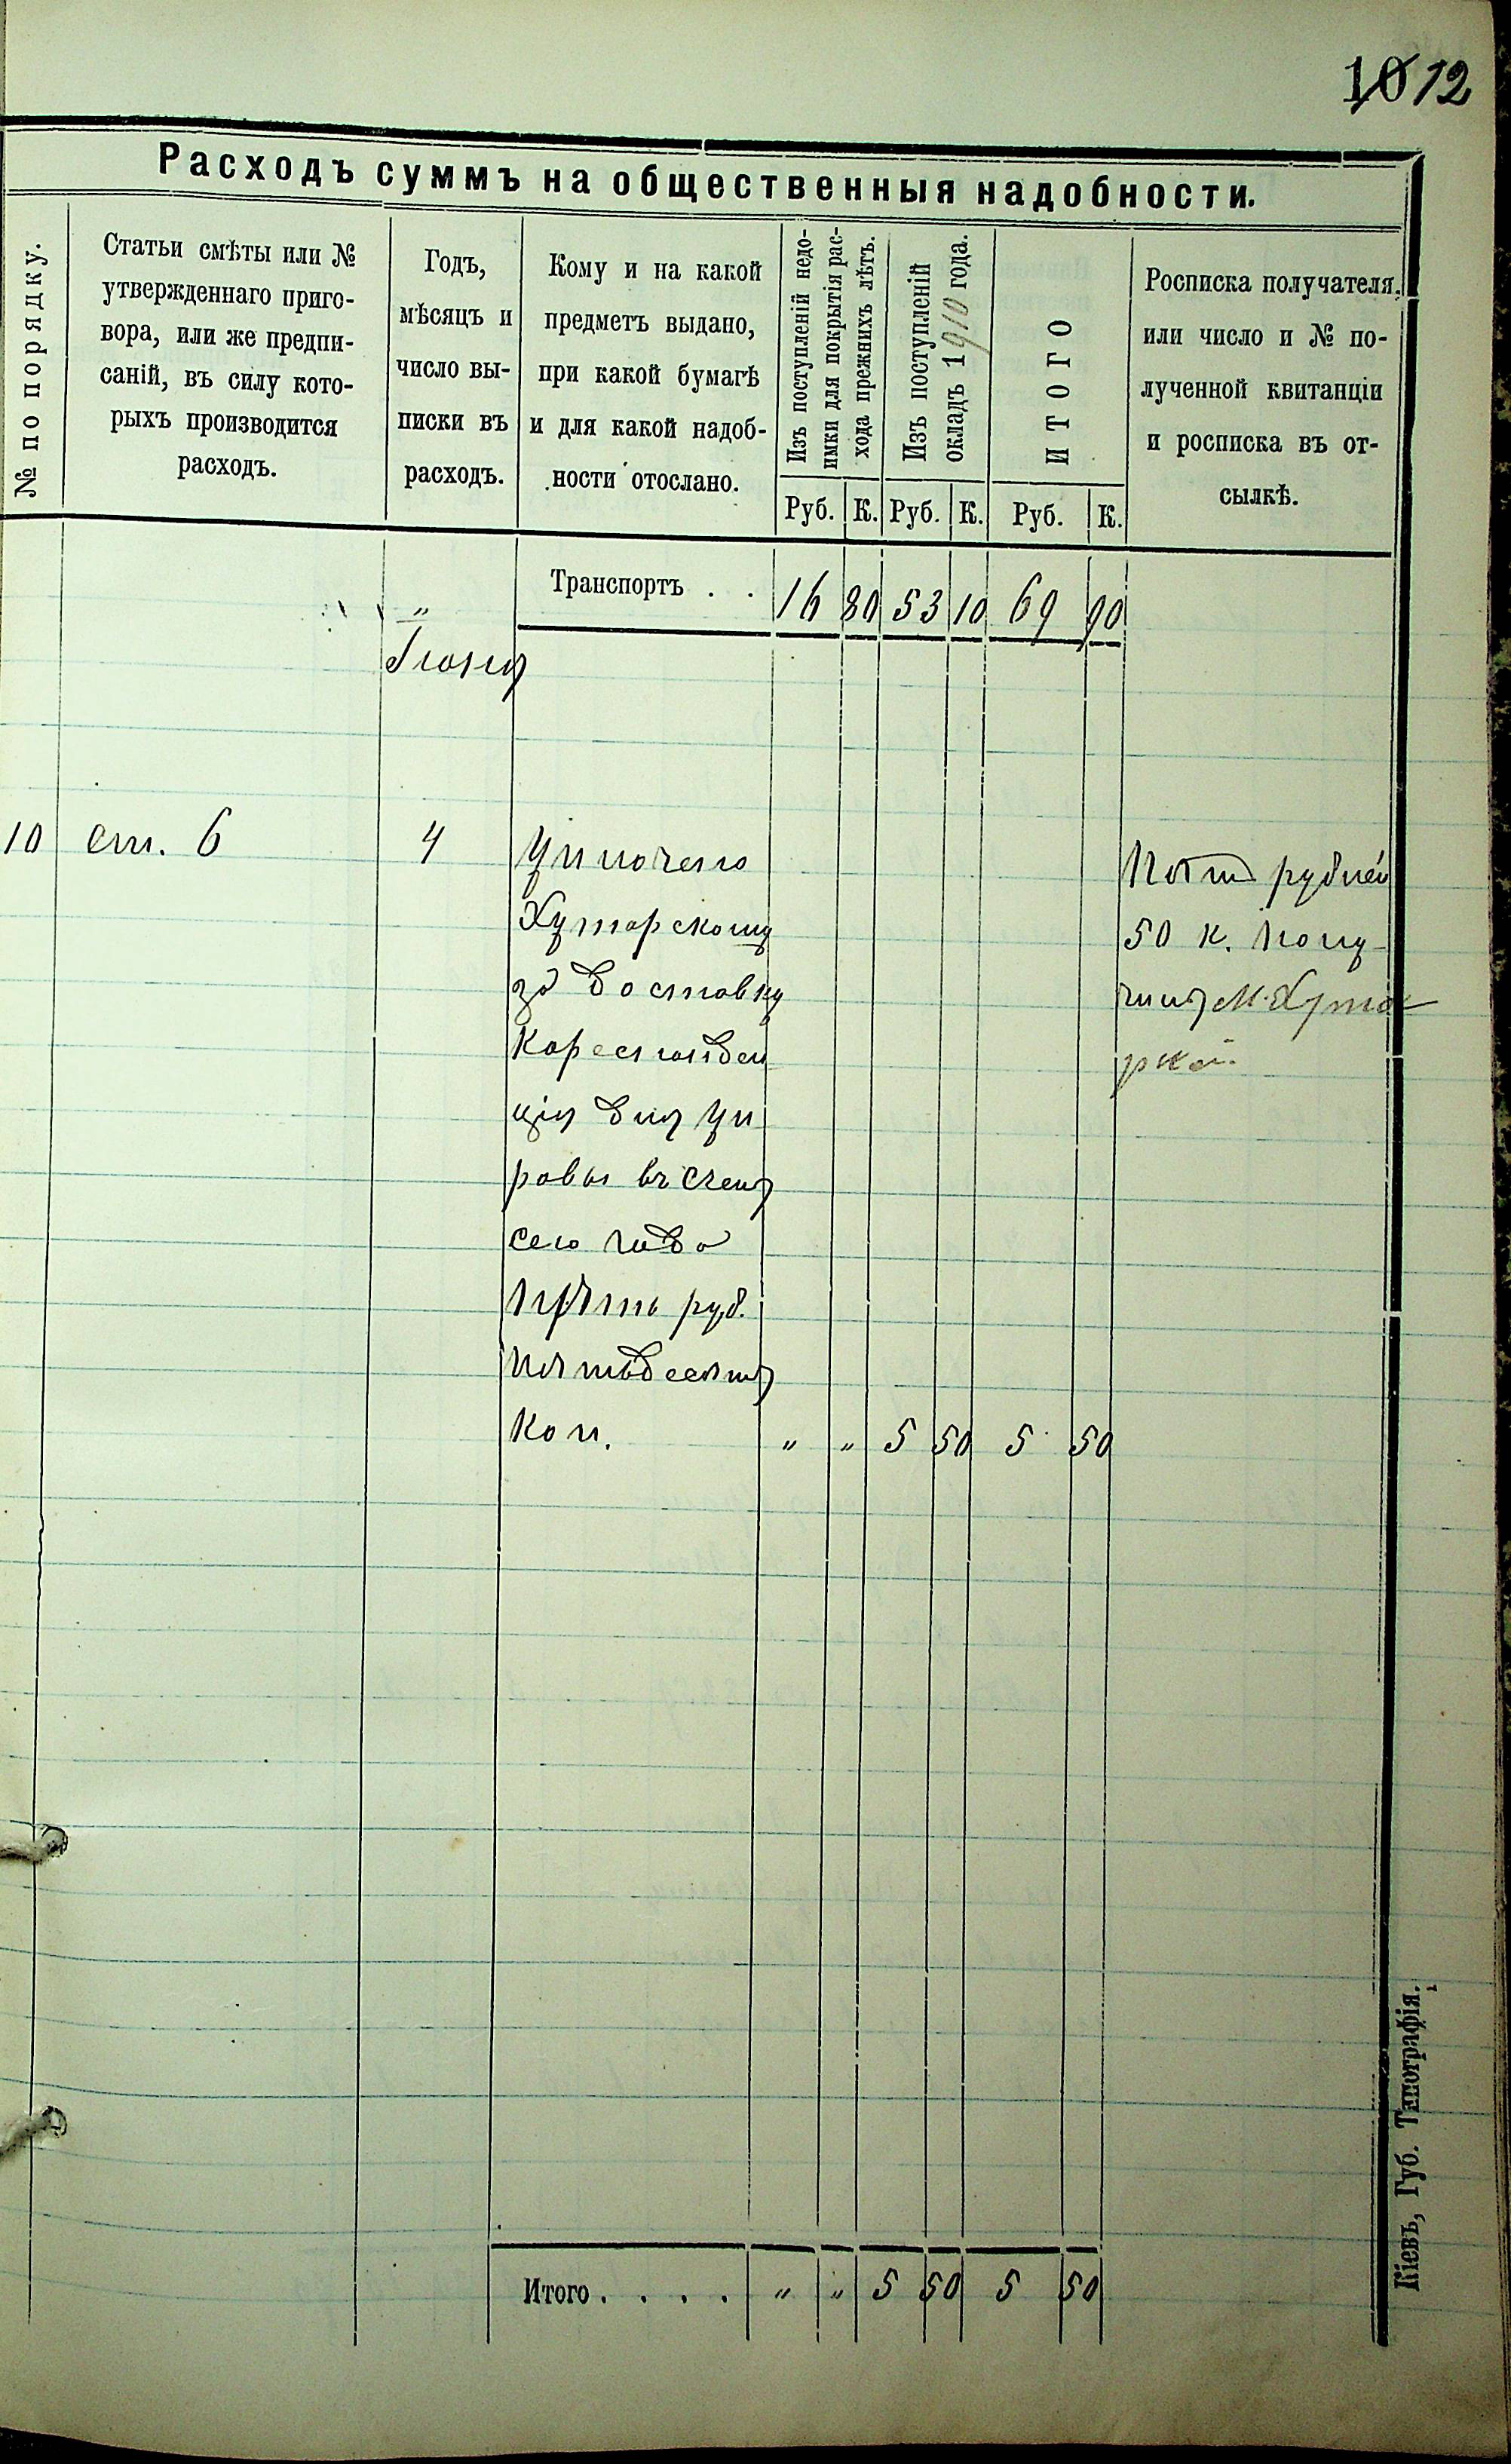 10 12
Расходъ суммъ на общественныя надобности.
№ по порядку.
Статьи смѣты или №
утвержденнаго приго-
вора, или же предпи-
саній, въ силу кото-
рыхъ производится
расходъ.
Годъ,
мѣсяцъ и
число вы-
писки въ
расходъ.
Кому и на какой
предметъ выдано,
при какой бумагѣ
и для какой надоб-
ности отослано.
Изъ поступленій недо-
имки для покрытія рас-
хода прежнихъ лѣтъ.
Изъ поступленій
окладъ 1910 года.
ИТОГО
Росписка получателя,
или число и № по-
лученной квитанціи
и росписка въ от-
сылкѣ.
Руб. К. Руб. К. Руб. К.
Транспортъ . . 16 80 53 10 69 90
"
Іюня
10 ст. 6 4 Уплочено
Хуторскому
за доставку
кореспонден
ціи для Уп
равы въ счетъ
сего года
пять руб.
пятьдесятъ
коп. " " 5 50 5 50
Пять рублей
50 к. полу-
чилъ М. Хуто
рской
Итого . . . . " " 5 50 5 50
Кіевъ, Губ. Типографія.